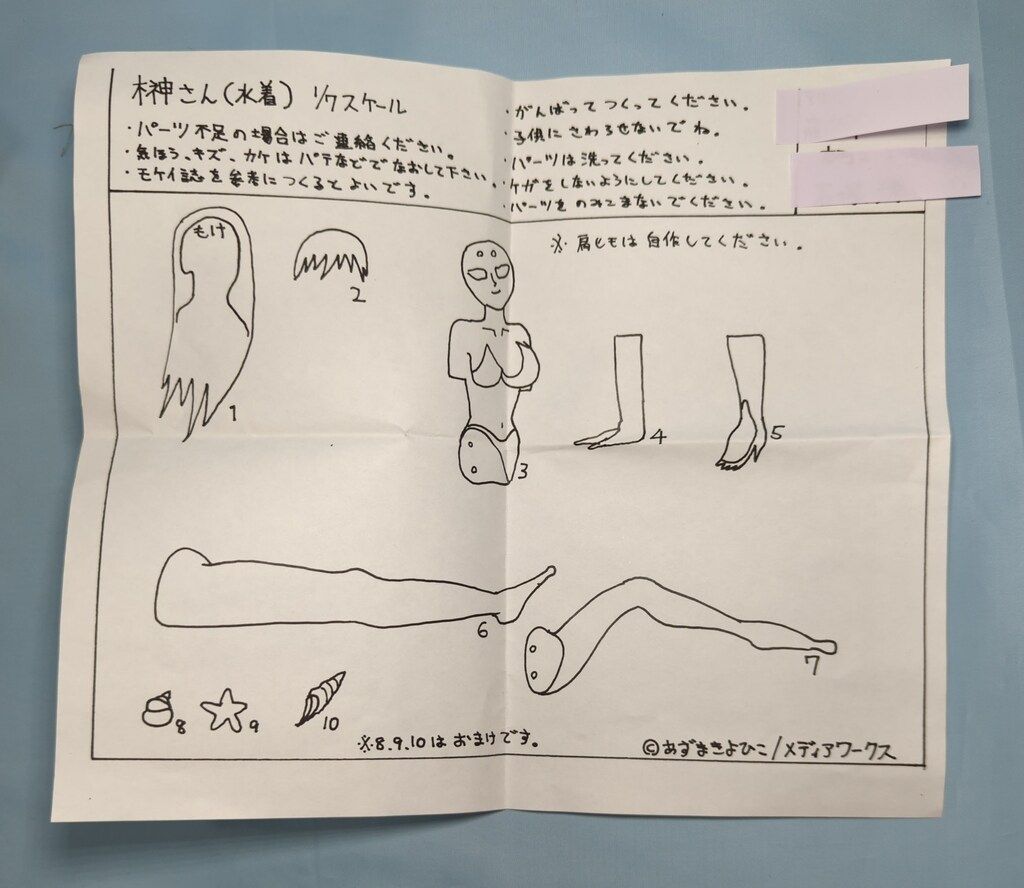 榊さん(水着) ソクスケール
・パーツ不足の場合はご連絡ください。
・気ほう、キズ、カケはパテなどでなおして下さい。
・モケイ誌を参考につくるとよいです。
・がんばってつくってください。
・子供にさわらせないでね。
・パーツは洗ってください。
・ケガをしないようにしてください。
・パーツをのみこまないでください。
※肩ヒモは自作してください。
もけ
1
2
3
4
5
6
7
8
9
10
※8.9.10はおまけです。
©あずまきよひこ/メディアワークス